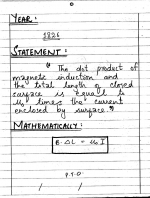 YEAR :
1826
STATEMENT :
" The dot product of
magnetic induction and
the total length of closed
surface is equall to
μ₀ times the current
enclosed by surface."
MATHEMATICALLY :
B · ΔL = μ₀ I
P.T.O